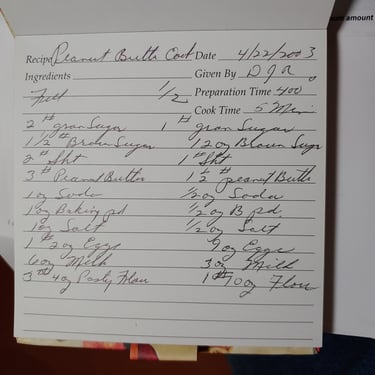 Recipe Peanut Butter Cook Date 4/22/2003
Ingredients Given By D J R.
Full 1/2 Preparation Time 400
Cook Time 5 Min
2 # gran Sugar 1 # gran Sugar
1 1/2 # Brown Sugar 12 oz Brown Sugr
2 # Sht 1 # Sht
3 # Peanut Butter 1 1/2 # peanut Butt
1 oz Soda 1/2 oz Soda
1 oz Baking pd 1/2 oz B pd.
1 oz Salt 1/2 oz Salt
1 # 2 oz Eggs 9 oz Eggs
6 oz Milk 3 oz Milk
3 # 4 oz Pastry Flour 1 # 10 oz Flour
um amount